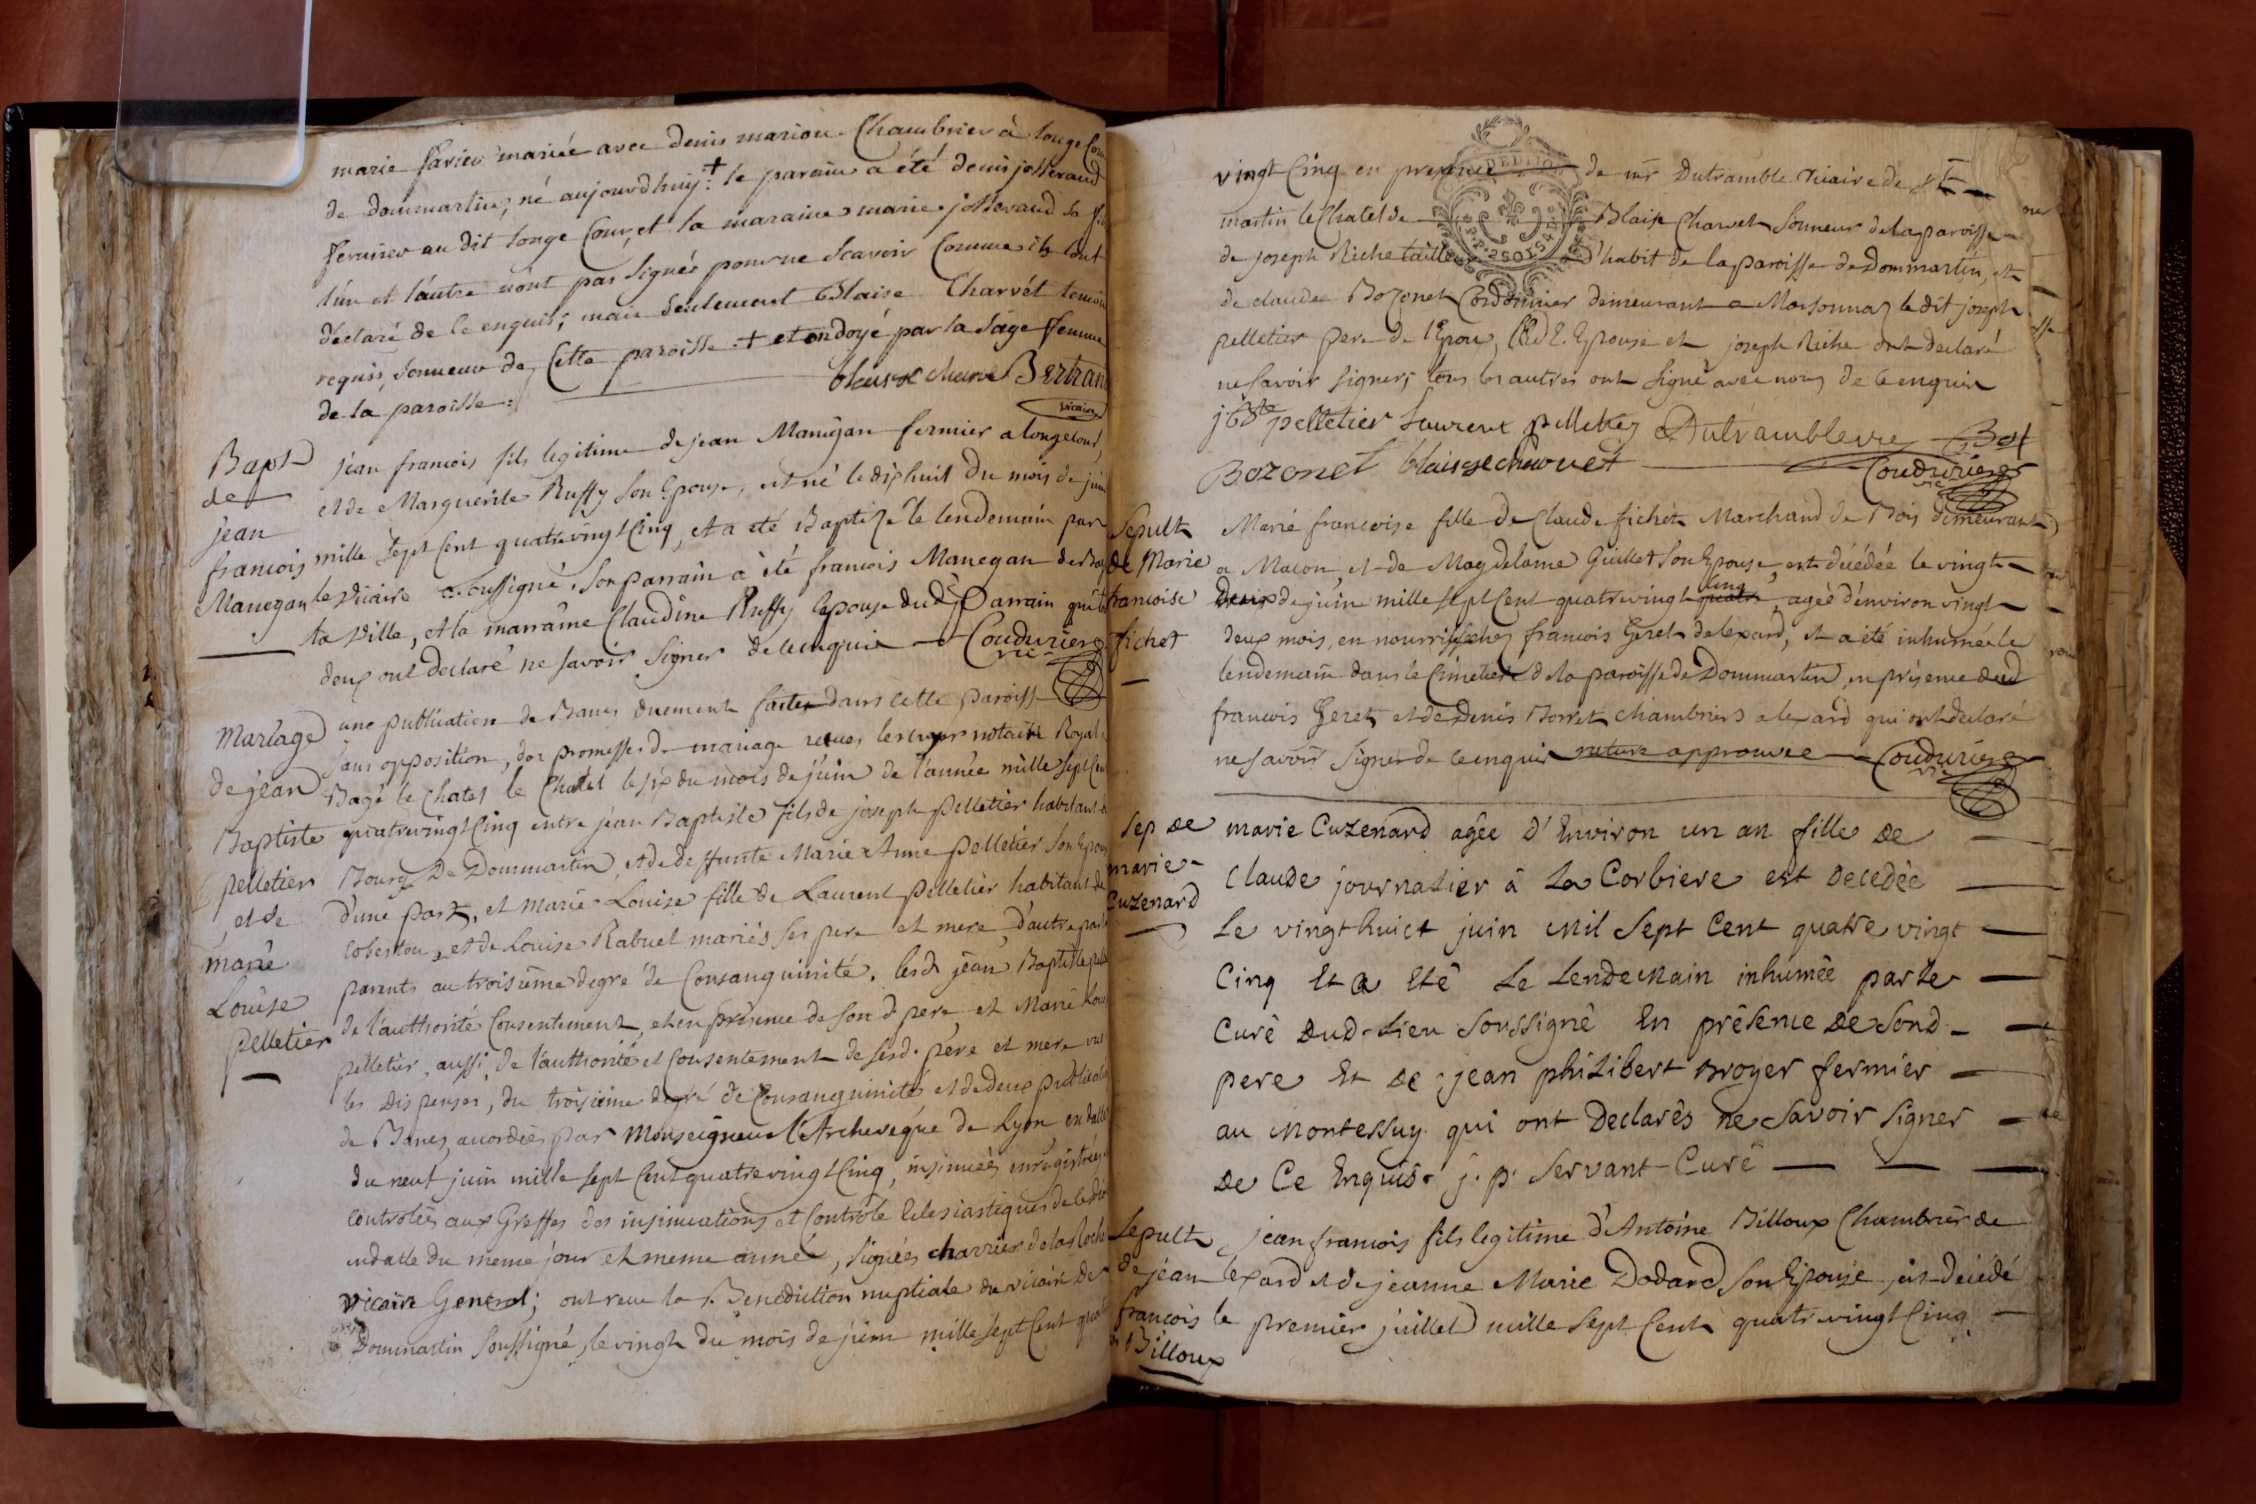 marie farier mariée avec denis marion Chambrier à longe Cour
de dommartin, né aujourdhuy: + le parain a été denis josserand
fermier au dit longe Cour, et la maraine marie josserand sa
l'un et l'autre n'ont pas signés pour ne scavoir Comme ils l'ont
déclaré de ce enquis; mais seulement Blaise Charvét temoin
requis, sonneur de Cette paroisse. + et ondoyé par la sage femme
de la paroisse:
blaisse charve Bertrand
vicaire
Bapt
de
jean
francois
Manegan
jean francois fils legitime de jean Manégan fermier a longecour,
et de Marguerite Ruffy son Epouse, est né le dixhuit du mois de juin
mille sept Cent quatrevingt Cinq, et a été Baptizé le lendemain par
le viaire soussigné, son parrain à été francois Manegan de Bagé
la ville, et la marraine Claudine Ruffy Epouse dud. Parrain qui
deux ont declaré ne savoir signer de ce enquis Coudurier
vic
Mariage
de jean
Baptiste
pelletier
et de
marie
Louise
Pelletier
une publication de Bancs duement faite dans cette paroisse
sans opposition, des promesses de mariage notaire Royal
Bagé le Chatel le Chatel le six du mois de juin de l'année mille sept Cent
quatrevingt Cinq entre jean Baptiste fils de joseph pelletier habitant
Bourg De Dommartin, et de deffunte Marie Anne Pelletier son Epouse
d'une part, et marie Louise fille de Laurent pelletier habitant de
et de Louise Rabuel mariés ses pere et mere d'autre part
parents au troisième degré de Consanguinité. lesd. jean Baptiste
de l'authorité Consentement, et en présence de son d. pere et Marie Louise
pelletier, aussi de l'authorité et Consentement de sesd. père et mere vu
les dispenses, du troisième degré de Consanguinité et de deux publications
de Bancs, accordées par Monseigneur l'Archevêque de Lyon en datte
du neuf juin mille sept Cent quatrevingt Cinq, insinuées enregistrées
controlées aux Greffes des insinuations et Controle Eclesiastiques
endatte du meme jour et meme année, signées charrier de la Roche
vicaire General; ont recu la Benediction nuptiale du vicaire de
Dommartin soussigné, le vingt du mois de juin mille sept Cent quatre
vingt Cinq en presence de mr Dutramble vicaire de St
martin le Chatel de Blaise Charvet sonneur de la paroisse
de joseph Riche tailleur d'habit de la paroisse de Dommartin, et
de claude Bozonet Cordonnier demeurant a Marsonnaz le dit joseph
pelletier pere de l'Epoux, l'Epouse et joseph Riche ont declaré
ne savoir signer; tous les autres ont signé avec nous de ce enquis
j Bte pelletier laurent pelletier Dutramble
Bozonet blaisse charvet Coudurier
vic
Sepult
de Marie
francoise
fichet
Marie francoise fille de Claude fichet Marchand de Bois demeurant
a Macon, et de Magdelaine Guillet son Epouse, est décédée le vingt
Deux de juin mille sept Cent quatrevingt quatre cinq, agée d'environ vingt
deux mois, en nourrisse chez francois Geret de lexard, et a été inhumée le
lendemain dans le Cimetiere de la paroisse de Dommartin, en présence dud
francois Geret, et de Denis Borret chambriers a lexard qui ont declaré
ne savoir signer de ce enquis rature approuvée Coudurier
vic
Sep de
marie
Cuzenard
marie Cuzenard agée d'Environ un an fille de
Claude journalier à La Corbiere est decedée
Le vingt huict juin mil sept Cent quatre vingt
Cinq Et a Eté Le Lendemain inhumée par le
Curé dud. Lieu soussigné En présence de sond.
pere Et de jean philibert Broyer fermier
au montessuy qui ont Declarés ne savoir signer
de Ce Enquis. j. p. Servant Curé
Sepult
de jean
francois
Billoux
jean francois fils legitime d'Antoine Billoux Chambrier de
lexard et de jeanne Marie Dodard son Epouse, est décédé
le premier juillet mille sept Cent quatrevingt Cinq